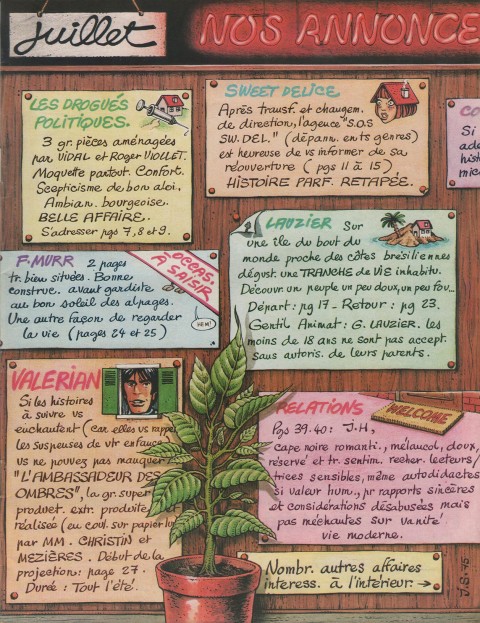 Juillet
NOS ANNONCE
LES DROGUÉS
POLITIQUES.
3 gr. pièces aménagées
par VIDAL et Roger VIOLLET.
Moquette partout. Confort.
Scepticisme de bon aloi,
Ambian. bourgeoise.
BELLE AFFAIRE.
S'adresser pgs 7, 8 et 9.
SWEET DELICE
Après transf. et changem.
de direction, l'agence "S.O.S
SW. DEL." (dépann. en ts genres)
est heureuse de vs informer de sa
réouverture (pgs 11 à 15).
HISTOIRE PARF. RETAPÉE.
CO
Si
ade
hist
mic
F. MURR 2 pages
tr. bien situées. Bonne
construc. avant gardiste
au bon soleil des alpages.
Une autre façon de regarder
la vie (pages 24 et 25)
OCCAS.
A SAISIR
HEM!
LAUZIER Sur
une île du bout du
monde proche des côtes brésiliennes
dégust. une TRANCHE de VIE inhabitu.
Découvr. un peuple un peu doux, un peu fou...
Départ: pg 17. Retour: pg 23.
Gentil Animat: G. LAUZIER. les
moins de 18 ans ne sont pas accept.
sans autoris. de leurs parents.
VALERIAN
Si les histoires
à suivre vs
enchantent (car elles vs rappel
les suspenses de vtr enfance
vs ne pouvez pas manquer
"L'AMBASSADEUR DES
OMBRES", la gr. super
product. extr. produite
réalisée (eu coul. sur papier lux
par MM. CHRISTIN et
MEZIÈRES. Début de la
projection: page 27.
Durée: Tout l'été.
WELCOME
RELATIONS
Pgs 39.40: J.H,
cape noire romanti., mélancol, doux,
réservé et tr. sentim. recher. lecteurs/
trices sensibles, même autodidactes
si valeur hum., pr rapports sincères
et considérations désabusées mais
pas méchantes sur vanité
vie moderne.
Nombr. autres affaires
interess. à l'intérieur. →
J.S. 75